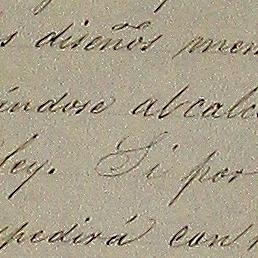 s diseños men
éndose al calc
ley. Si por
xpedirá con